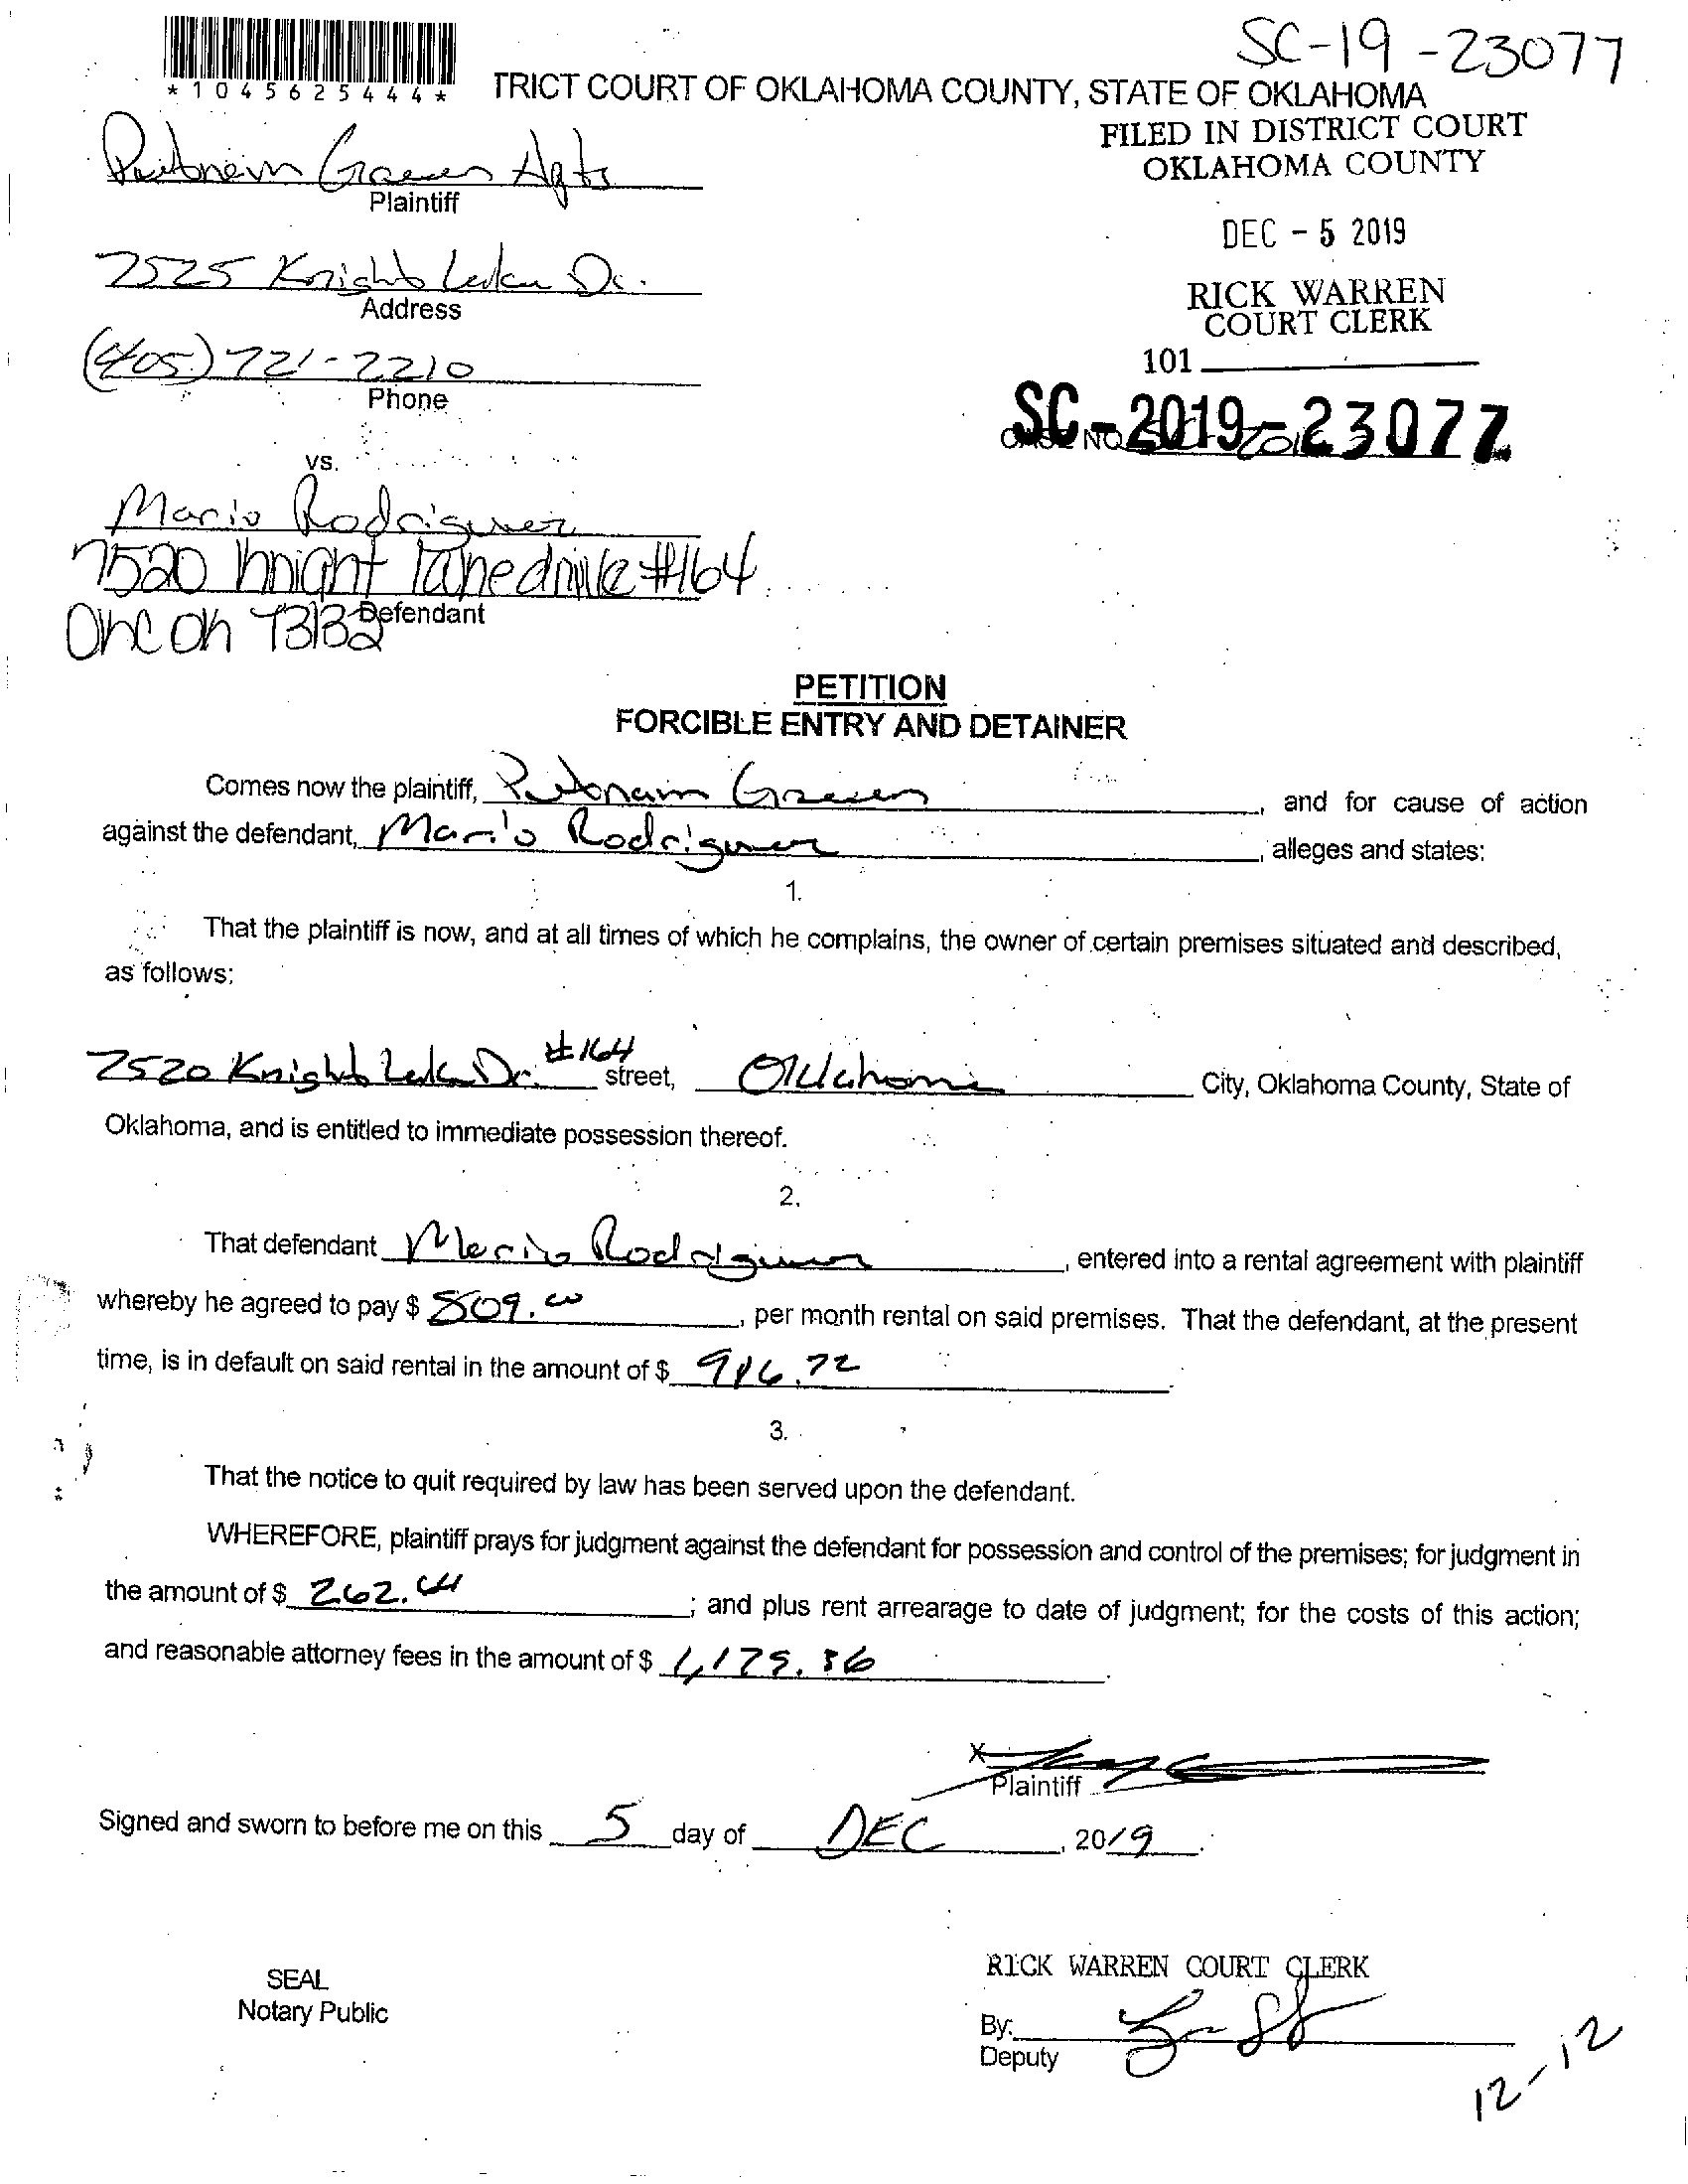 SC-19-23077
*1045625444*
TRICT COURT OF OKLAHOMA COUNTY, STATE OF OKLAHOMA
FILED IN DISTRICT COURT
OKLAHOMA COUNTY
Plaintiff
DEC - 5 2019
7525 Knight Lake Dr.
Address
RICK WARREN
COURT CLERK
(405) 721-2210
Phone
101
SC-2019-23077
CASE NO.
vs.
Mario Rodriguez
7520 Knight lake drive #164
OKC OK 73132
Defendant
PETITION
FORCIBLE ENTRY AND DETAINER
Comes now the plaintiff, Putnam Green, and for cause of action
against the defendant, Mario Rodriguez, alleges and states:
1.
That the plaintiff is now, and at all times of which he complains, the owner of certain premises situated and described,
as follows:
7520 Knight Lake Dr. #164 street, Oklahoma City, Oklahoma County, State of
Oklahoma, and is entitled to immediate possession thereof.
2.
That defendant Mario Rodriguez, entered into a rental agreement with plaintiff
whereby he agreed to pay $ 809.00, per month rental on said premises. That the defendant, at the present
time, is in default on said rental in the amount of $ 916.72.
3.
That the notice to quit required by law has been served upon the defendant.
WHEREFORE, plaintiff prays for judgment against the defendant for possession and control of the premises; for judgment in
the amount of $ 262.64; and plus rent arrearage to date of judgment; for the costs of this action;
and reasonable attorney fees in the amount of $ 1,179.36.
X
Plaintiff
Signed and sworn to before me on this 5 day of DEC, 2019.
RICK WARREN COURT CLERK
SEAL
Notary Public
By:
Deputy
12-12